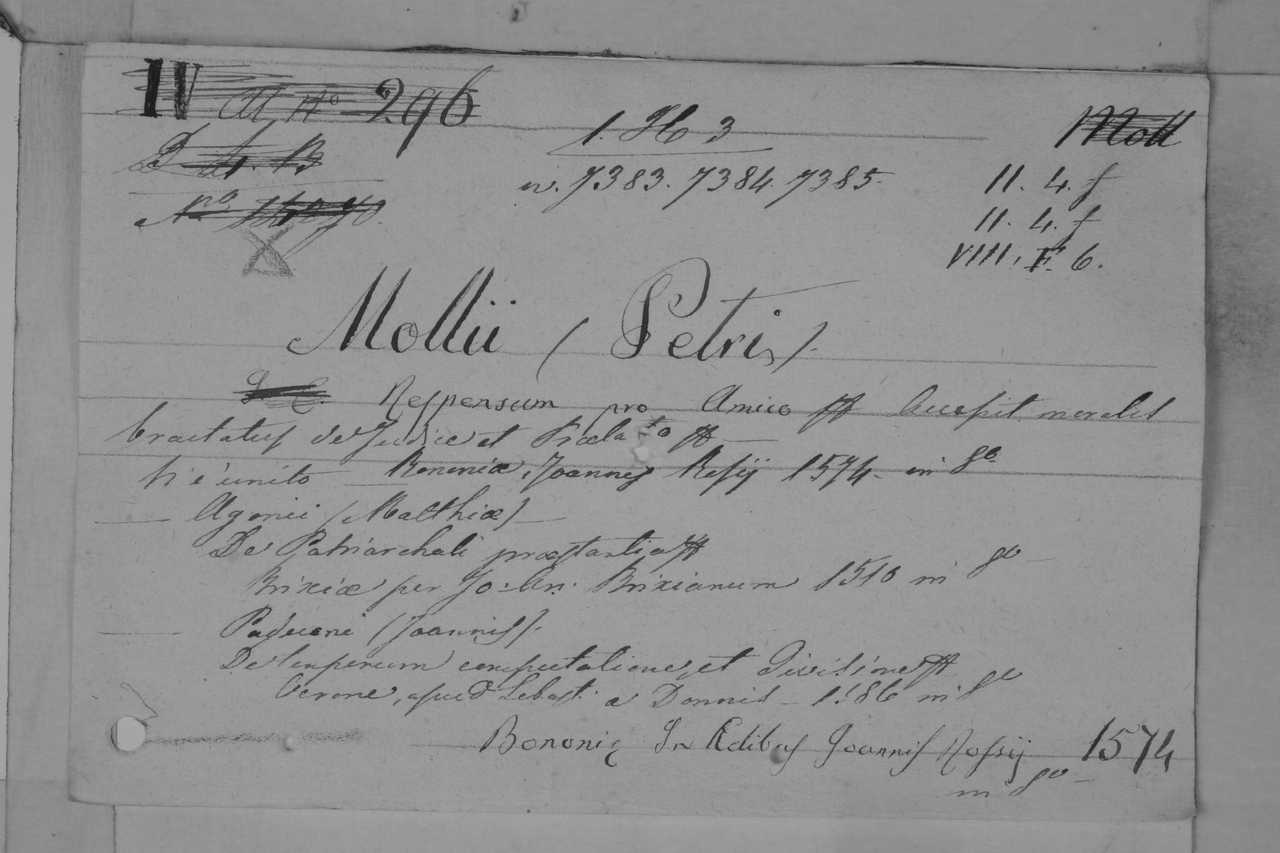 IV 296
1. H 3
Moll
n. 7383. 7384. 7385.
II. 4. f
II. 4. f
VIII. F. 6.
Mollii (Petri).
Responsum pro Amico ff Accessit moralis
tractatus de Judice et Prælato ff
v'è unito Bononiæ, Joannes Rossij 1574 in 8º
— (Matthiæ) —
De Patriarchali præstantia ff
Brixiæ per Jo: An: Brixianum 1510 in 8º
— (Joannis).
De temporum computatione, et Divisione ff
Verone, apud Sebast: a Donnis — 1586 in 8º
Bononię In Ædibus Joannis Rossij 1574
in 8º